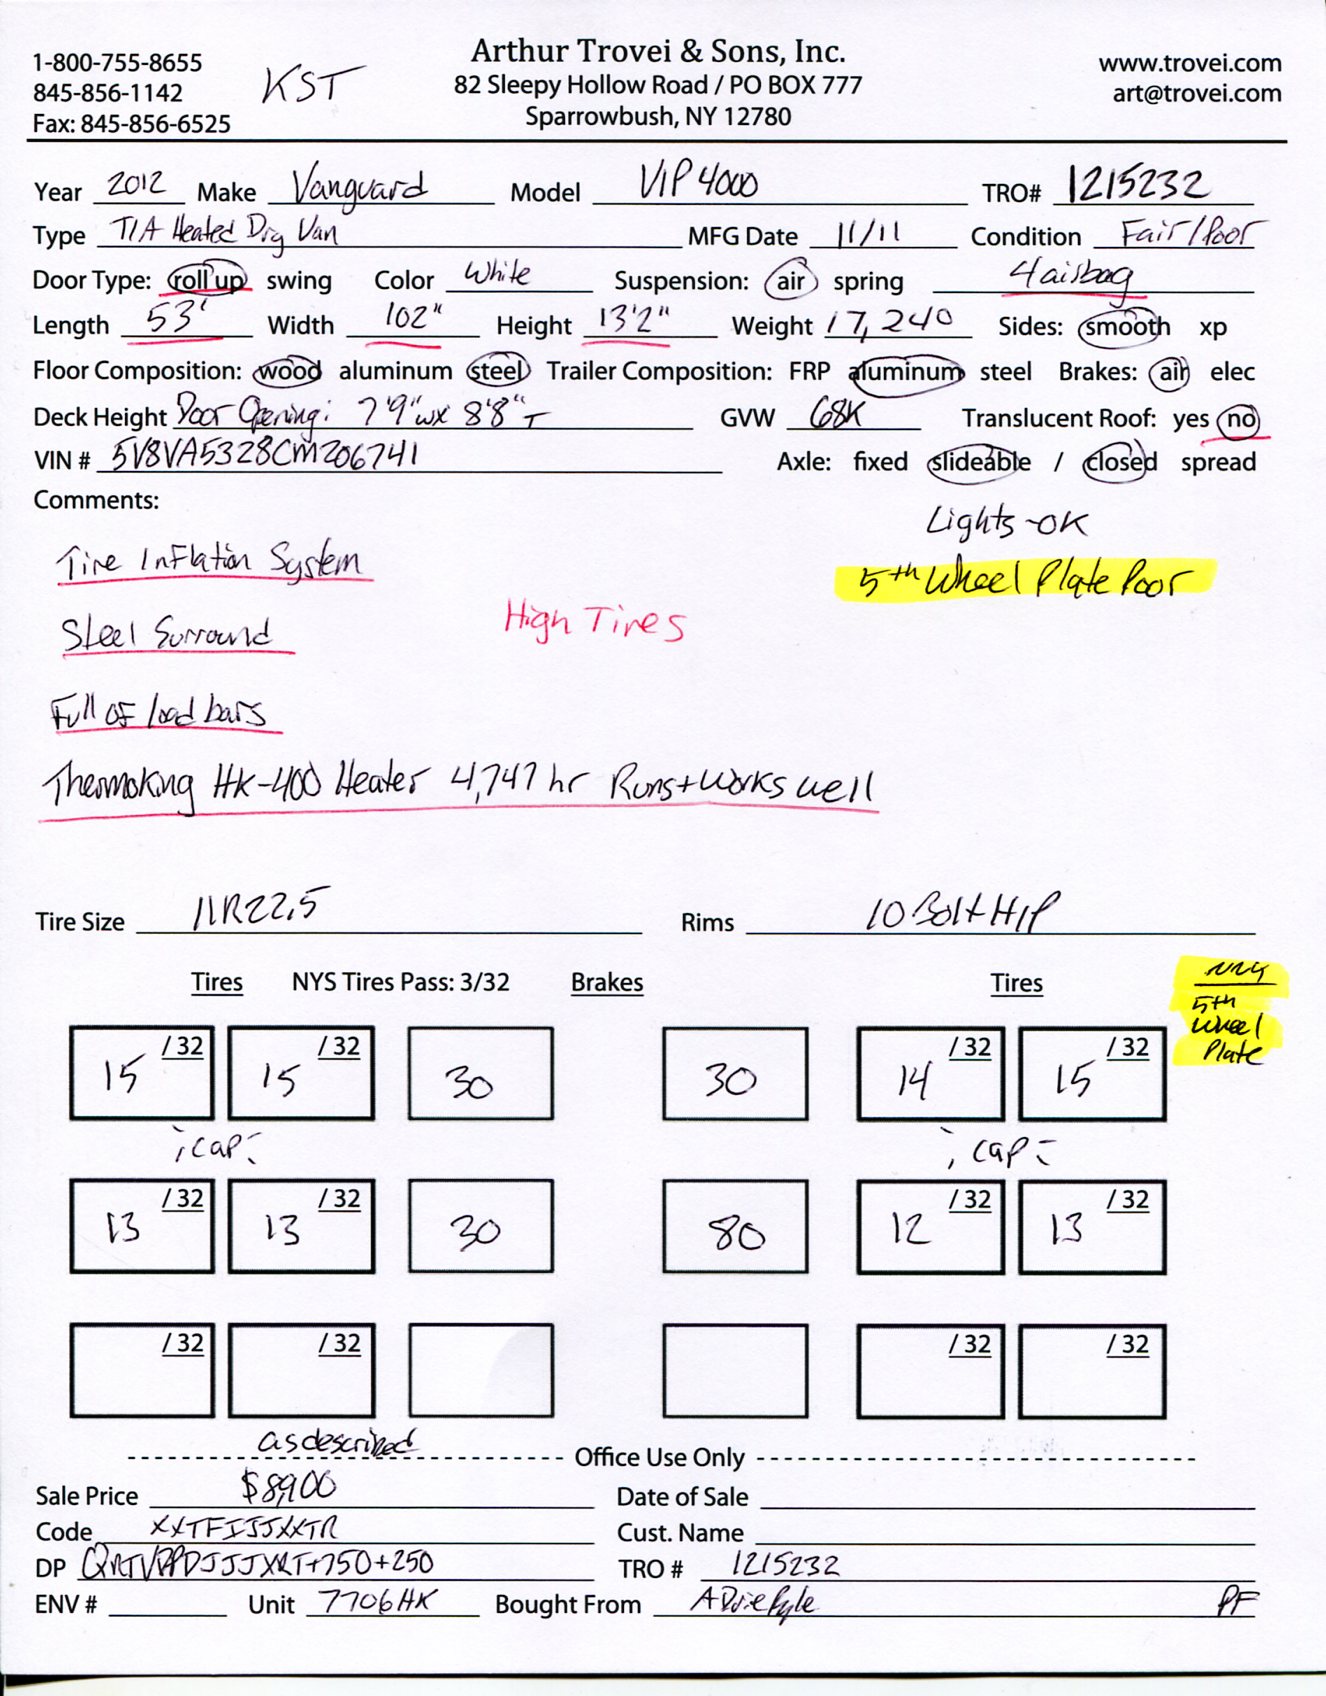 Arthur Trovei & Sons, Inc.
1-800-755-8655 82 Sleepy Hollow Road / PO BOX 777 www.trovei.com
845-856-1142 KST Sparrowbush, NY 12780 art@trovei.com
Fax: 845-856-6525
Year 2012 Make Vanguard Model VIP 4000 TRO# 1215232
Type T/A Heated Dry Van MFG Date 11/11 Condition Fair/Poor
Door Type: roll up swing Color White Suspension: air spring 4 airbag
Length 53' Width 102" Height 13'2" Weight 17,240 Sides: smooth xp
Floor Composition: wood aluminum steel Trailer Composition: FRP aluminum steel Brakes: air elec
Deck Height Door Opening: 7'9"w x 8'8"T GVW 68K Translucent Roof: yes no
VIN # 5V8VA5328CM206741 Axle: fixed slideable / closed spread
Comments:
Lights-OK
Tire Inflation System 5th Wheel Plate Poor
High Tires
Steel Surround
Full of load bars
Thermoking HK-400 Heater 4,747 hr Runs+Works well
Tire Size 11R22.5 Rims 10 Bolt H/P
Tires NYS Tires Pass: 3/32 Brakes Tires
5th
Wheel
Plate
15 /32 15 /32 30 30 14 /32 15 /32
cap cap
13 /32 13 /32 30 80 12 /32 13 /32
/32 /32 /32 /32
as described
Office Use Only
Sale Price $8,900 Date of Sale
Code XXTFIJJXXTR Cust. Name
DP TRO # 1215232
ENV # Unit 7706HK Bought From PF